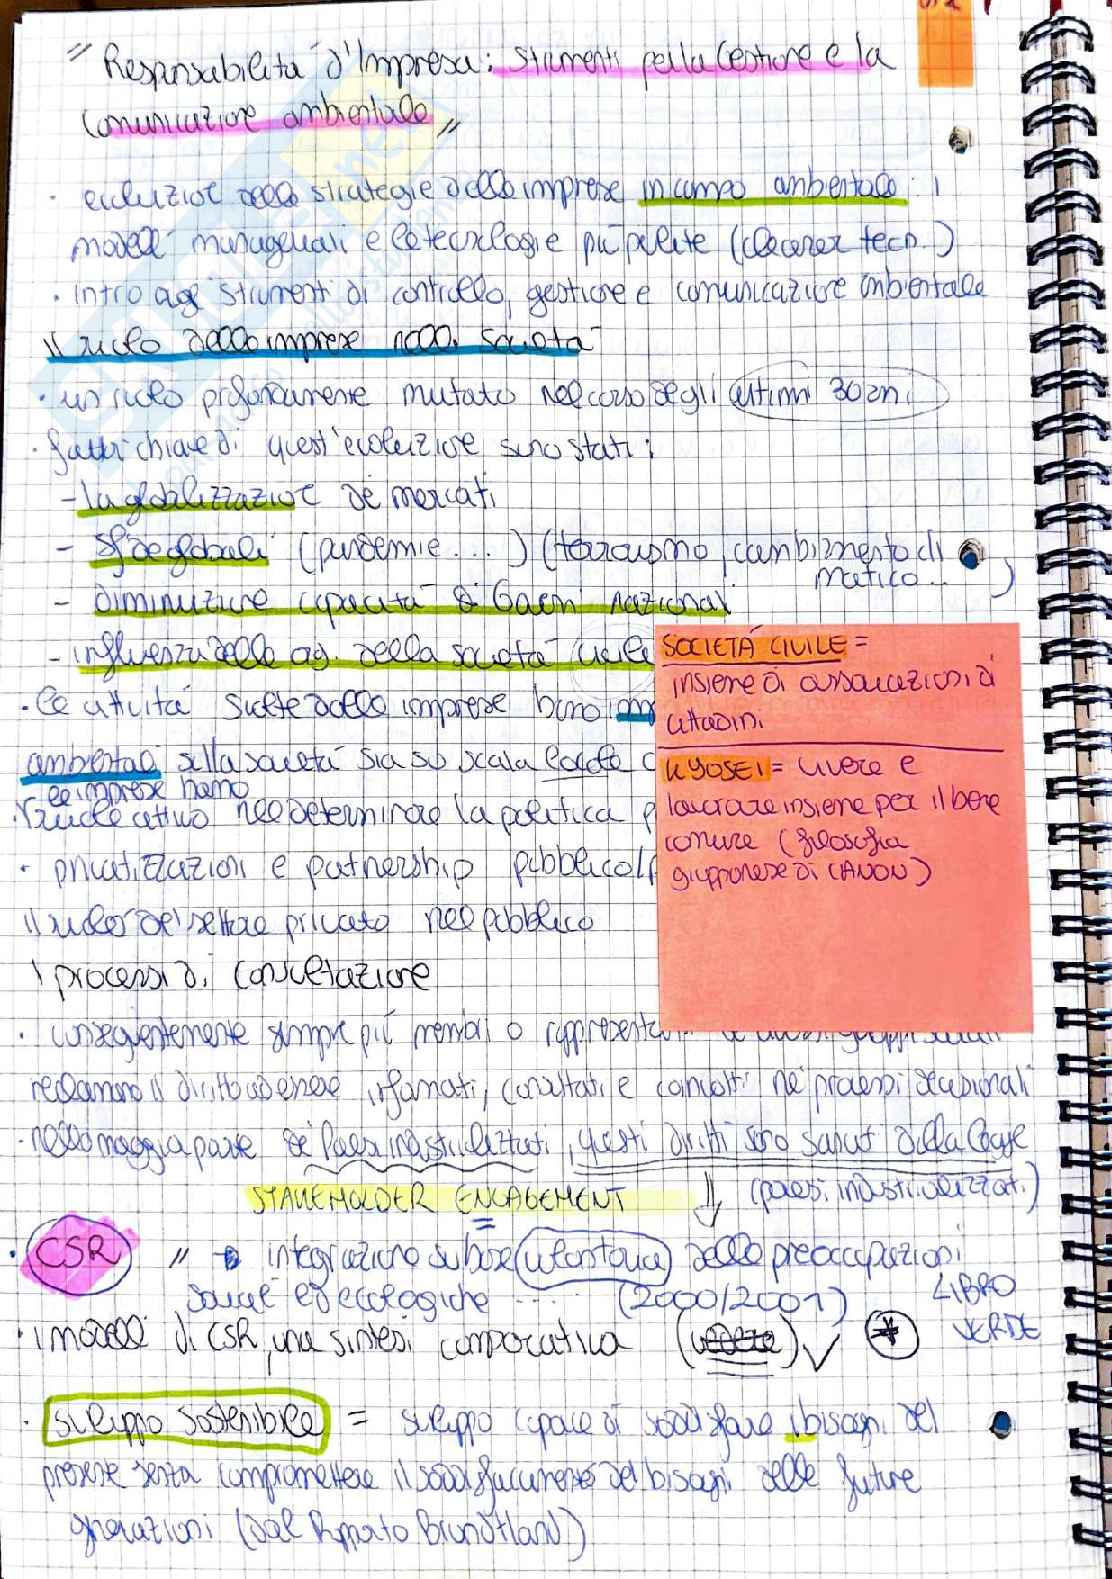 "Responsabilità d'Impresa: strumenti per la Gestione e la
comunicazione ambientale"
· evoluzione delle strategie delle imprese in campo ambientale: i
modelli manageriali e le tecnologie più pulite (cleaner tecn.)
· intro agli strumenti di controllo, gestione e comunicazione ambientale
Il ruolo delle imprese nella società
· un ruolo profondamente mutato nel corso degli ultimi 30 anni
· fattori chiave di quest'evoluzione sono stati:
- la globalizzazione dei mercati
- sfide globali (pandemie...) (terrorismo, cambiamento cli
matico...)
- diminuzione capacità di Governi nazionali
- influenza delle og. della società civile
SOCIETÀ CIVILE =
insieme di associazioni di
cittadini
KYOSEI = vivere e
lavorare insieme per il bene
comune (filosofia
giapponese di CANON)
· le attività svolte dalle imprese hanno
ambientali sulla società sia su scala locale
le imprese hanno
· ruolo attivo nel determinare la politica
· privatizzazioni e partnership pubblico/p
il ruolo del settore privato nel pubblico
i processi di consultazione
· conseguentemente sempre più membri o rappresentanti di
reclamano il diritto ad essere informati, consultati e coinvolti nei processi decisionali
· nella maggior parte dei Paesi industrializzati, questi diritti sono sanciti dalla legge
STAKEHOLDER ENGAGEMENT (paesi industrializzati)
=
· CSR " → integrazione su base volontaria delle preoccupazioni
sociali ed ecologiche .... (2000/2001) LIBRO
VERDE
· i modelli di CSR, una sintesi comparativa (vedere) ✓ *
· sviluppo sostenibile = sviluppo capace di soddisfare i bisogni del
presente senza compromettere il soddisfacimento dei bisogni delle future
generazioni (dal Rapporto Brundtland)